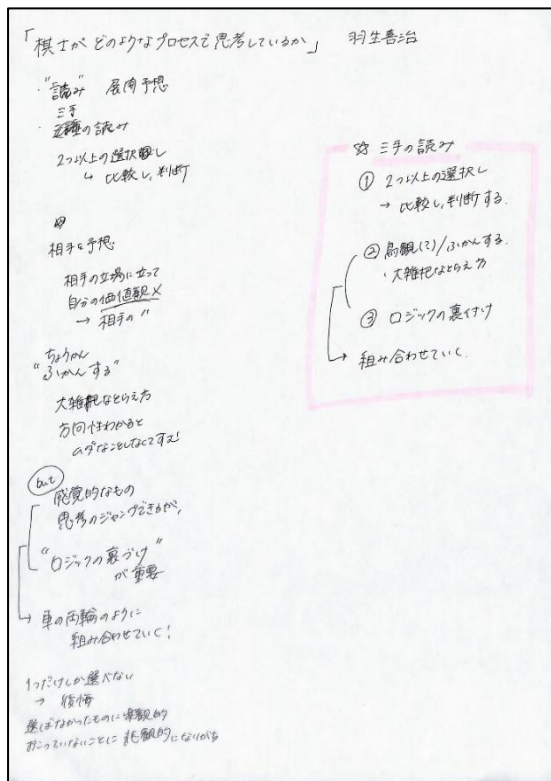 「棋士が どのようなプロセスで思考しているか」 羽生善治
・"読み" 展開予想
三手
・の読み
2つ以上の選択し
↳ 比較し、判断
相手を予想
相手の立場に立って
自分の価値観×
→ 相手の 〃
ちょうかん
"ふかんする"
大雑把なとらえ方
方向性わかると
ムダなことしなくてすむ!
but
感覚的なもの
思考のジャンプできるが、
"ロジックの裏づけ"
が重要
→ 車の両輪のように
組み合わせていく!
1つだけしか選べない
→ 後悔
選ばなかったものに楽観的
おこっていないことに悲観的になりがち
☆ 三手の読み
① 2つ以上の選択し
→ 比較し、判断する.
② 鳥観(?)/ふかんする.
・大雑把なとらえ方
③ ロジックの裏付け
→ 組み合わせていく.